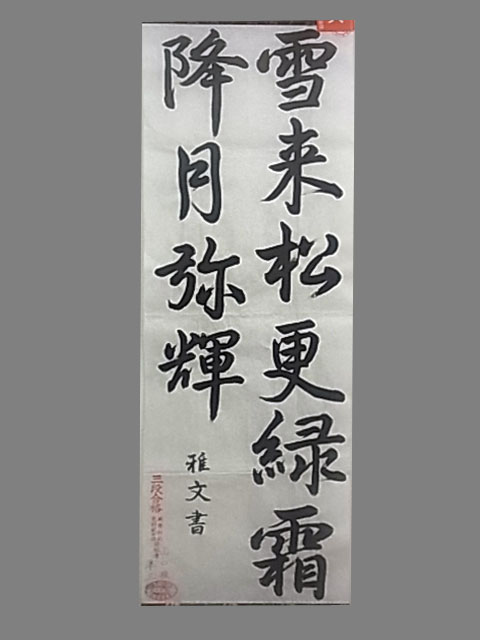 雪来松更緑霜
降月弥輝
雅文書
三段合格